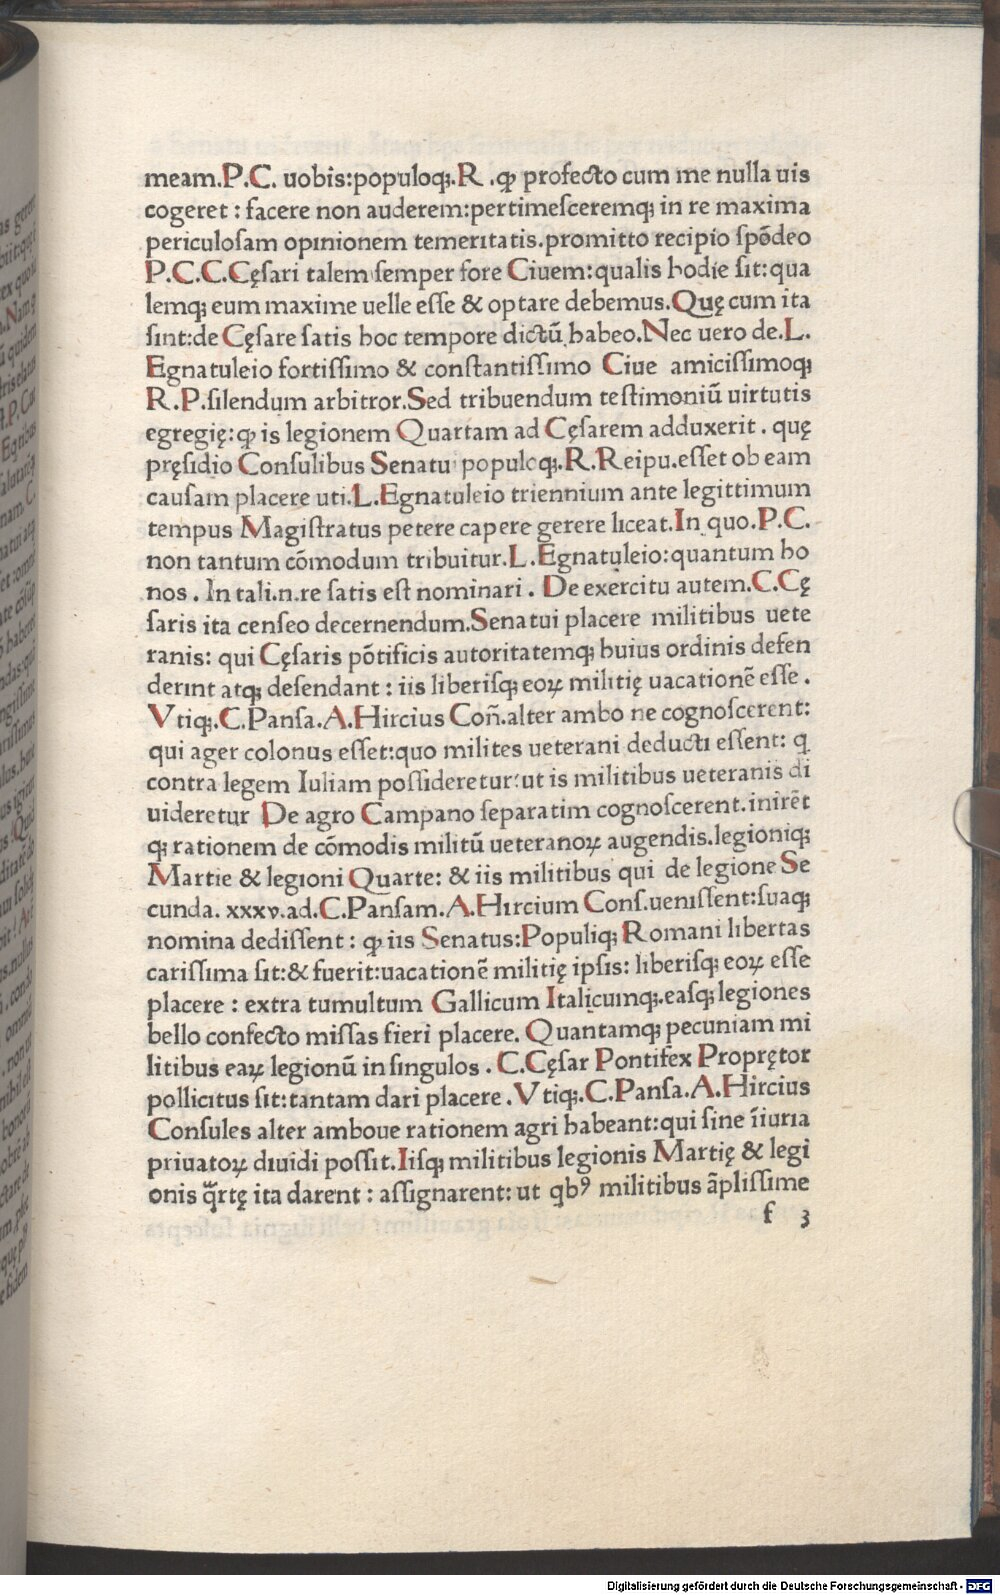 meam.P.C. uobis:populoqꝫ.R .ꝙ profecto cum me nulla uis
cogeret : facere non auderem:pertimeſceremqꝫ in re maxima
periculoſam opinionem temeritatis.promitto recipio ſpōdeo
P.C.C.Cęſari talem ſemper fore Ciuem:qualis hodie ſit:qua
lemqꝫ eum maxime uelle eſſe & optare debemus.Quę cum ita
ſint:de Cęſare ſatis hoc tempore dictū habeo.Nec uero de.L.
Egnatuleio fortiſſimo & conſtantiſſimo Ciue amiciſſimoqꝫ
R.P.ſilendum arbitror.Sed tribuendum teſtimoniū uirtutis
egregię:ꝙ is legionem Quartam ad Cęſarem adduxerit . quę
pręſidio Conſulibus Senatu populoqꝫ.R.Reipu.eſſet ob eam
cauſam placere uti.L.Egnatuleio triennium ante legittimum
tempus Magiſtratus petere capere gerere liceat.In quo.P.C.
non tantum cōmodum tribuitur.L.Egnatuleio:quantum ho
nos . In tali.n.re ſatis eſt nominari . De exercitu autem.C.Cę
ſaris ita cenſeo decernendum.Senatui placere militibus uete
ranis: qui Cęſaris pōtificis autoritatemqꝫ huius ordinis defen
derint atqꝫ defendant : iis liberiſqꝫ eoꝝ militię uacationē eſſe .
Vtiqꝫ.C.Panſa.A.Hircius Coñ.alter ambo ne cognoſcerent:
qui ager colonus eſſet:quo milites ueterani deducti eſſent: q
contra legem Iuliam poſſideretur:ut is militibus ueteranis di
uideretur De agro Campano ſeparatim cognoſcerent.inirēt
qꝫ rationem de cōmodis militū ueteranoꝝ augendis.legioniqꝫ
Martie & legioni Quarte: & iis militibus qui de legione Se
cunda. xxxv.ad.C.Panſam.A.Hircium Conſ.ueniſſent:ſuaqꝫ
nomina dediſſent : ꝙ iis Senatus:Populiqꝫ Romani libertas
cariſſima ſit:& fuerit:uacationē militię ipſis: liberiſqꝫ eoꝝ eſſe
placere : extra tumultum Gallicum Italicumqꝫ.eaſqꝫ legiones
bello confecto miſſas fieri placere. Quantamqꝫ pecuniam mi
litibus eaꝝ legionū in ſingulos . C.Cęſar Pontifex Proprętor
pollicitus ſit:tantam dari placere .Vtiqꝫ.C.Panſa.A.Hircius
Conſules alter amboue rationem agri habeant:qui ſine īiuria
priuatoꝝ diuidi poſſit.Iiſqꝫ militibus legionis Martię & legi
onis q̄rtę ita darent : aſſignarent: ut qbꝰ militibus āpliſſime
f 3
Digitalisierung gefördert durch die Deutsche Forschungsgemeinschaft - DFG